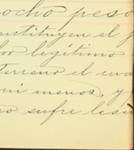 ocho peso
nstituyen el p
or legitimo
Terreno el cua
ni menos, y
no sufre lesi